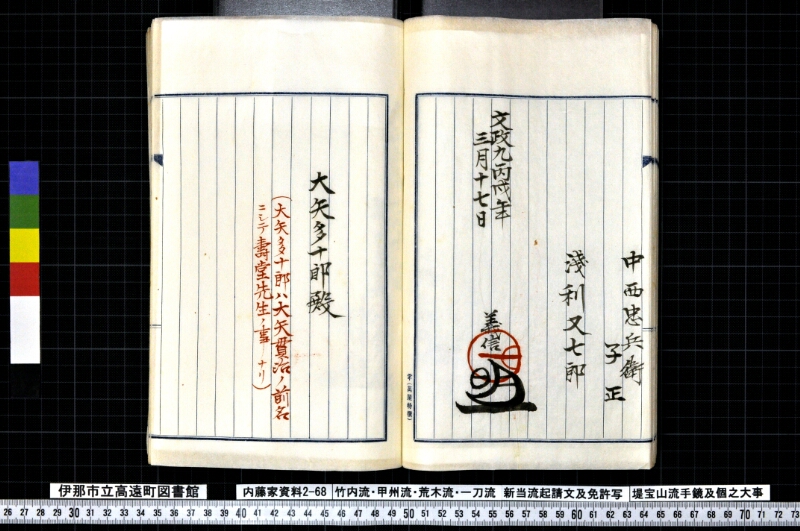 中西忠兵衛
子正
淺利又七郎
義信
文政九丙戌年
三月十七日
大矢多十郎殿
(大矢多十郎ハ大矢貫治ノ前名
ニシテ壽堂先生ノ事ナリ)
伊那市立高遠町図書館
内藤家資料2-68
竹内流・甲州流・荒木流・一刀流 新当流起請文及免許写
堤宝山流手鏡及個之大事
26 27 28 29 30 31 32 33 34 35 36 37 38 39 40 41 42 43 44 45 46 47 48 49 50 51 52 53 54 55 56 57 58 59 60 61 62 63 64 65 66 67 68 69 70 71 72 73